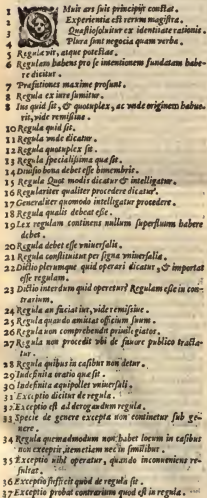 1 Muit ars suis principijs constat.
2 Experientia est rerum magistra.
3 Quæstio soluitur ex identitate rationis.
4 Plura sunt negocia quam verba.
5 Regula vir, atque potestas.
6 Regulam habens pro se intentionem fundatam habe-
re dicitur.
7 Præfationes maxime prosunt.
8 Regula ex iure sumitur.
8 Ius quid sit, & quotuplex, ac vnde originem habue-
rit, vide remissiue.
10 Regula quid sit.
11 Regula vnde dicatur.
12 Regula quotuplex sit.
13 Regula specialissima quæ sit.
14 Diuisio bona debet esse bimembris.
15 Regula Quot modis dicatur & intelligatur.
16 Regulariter qualiter procedere dicatur.
17 Generaliter quomodo intelligatur procedere.
18 Regula qualis debeat esse.
19 Lex regulam continens nullum superfluum habere
debet.
20 Regula debet esse vniuersalis.
21 Regula constituitur per signa vniuersalia.
22 Dictio plerumque quid operari dicatur, & importat
esse regulam.
23 Dictio interdum quid operetur? Regulam esse in con-
trarium.
24 Regula an faciat ius, vide remissiue.
25 Regula quando amittat officium suum.
26 Regula non comprehendit priuilegiatos.
27 Regula non procedit vbi de fauore publico tracta-
tur.
28 Regula quibus in casibus non detur.
29 Indefinita oratio quæ sit.
30 Indefinita æquipollet vniuersali.
31 Exceptio dicitur de regula.
32 Exceptio est ad derogandum regula.
33 Specie de genere excepta non continetur sub ge-
nere.
34 Regula quemadmodum non habet locum in casibus
non exceptis, item etiam nec in similibus.
35 Exceptio nihil operatur, quando inconueniens re-
sultat.
36 Exceptio sufficit quòd de regula sit.
37 Exceptio probat contrarium quod est in regula.